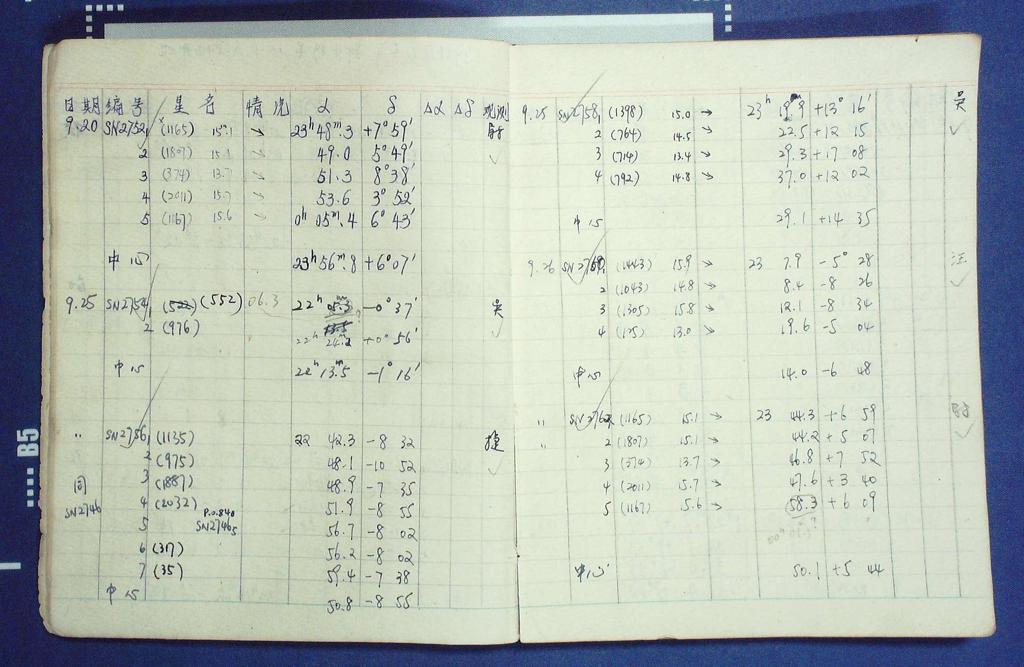 日期 编号 星名 情况 α δ Δα Δδ 观测
9.20 SN2752, 1 (1165) 15.1 → 23h 48m.3 +7° 59'
2 (1807) 15.1 → 49.0 5° 49'
3 (374) 13.7 → 51.3 8° 38'
4 (2011) 15.7 → 53.6 3° 52'
5 (1167) 15.6 → 0h 05m.4 6° 43'
中心 23h 56m.8 +6° 07'
9.25 SN2754, 1 (552) 06.3 22h 05.3 -0° 37' 吴
2 (976) 22h 24.2 +0° 56'
中心 22h 13m.5 -1° 16'
" SN2756, 1 (1135) 22 42.3 -8 32 捷
2 (975) 48.1 -10 52
3 (1887) 48.9 -7 35
同 SN2746
4 (2032) 51.9 -8 55
5 P.O.840 SN27465 56.7 -8 02
6 (317) 56.2 -8 02
7 (35) 59.4 -7 38
中心 50.8 -8 55
9.25 SN2758, 1 (1398) 15.0 → 23h 19m.9 +13° 16' 吴
2 (764) 14.5 → 22.5 +12 15
3 (714) 13.4 → 29.3 +17 08
4 (792) 14.8 → 37.0 +12 02
中心 29.1 +14 35
9.26 (1443) 15.9 → 23 7.9 -5° 28 汪
2 (1043) 14.8 → 8.4 -8 26
3 (1305) 15.8 → 12.1 -8 34
4 (135) 13.0 → 19.6 -5 04
中心 14.0 -6 48
" SN2762, 1 (1165) 15.1 → 23 44.3 +6 59
" 2 (1807) 15.1 → 44.2 +5 07
3 (374) 13.7 → 46.8 +7 52
4 (2011) 15.7 → 47.6 +3 40
5 (1167) 15.6 → 58.3 +6 09
中心 50.1 +5 44
B5